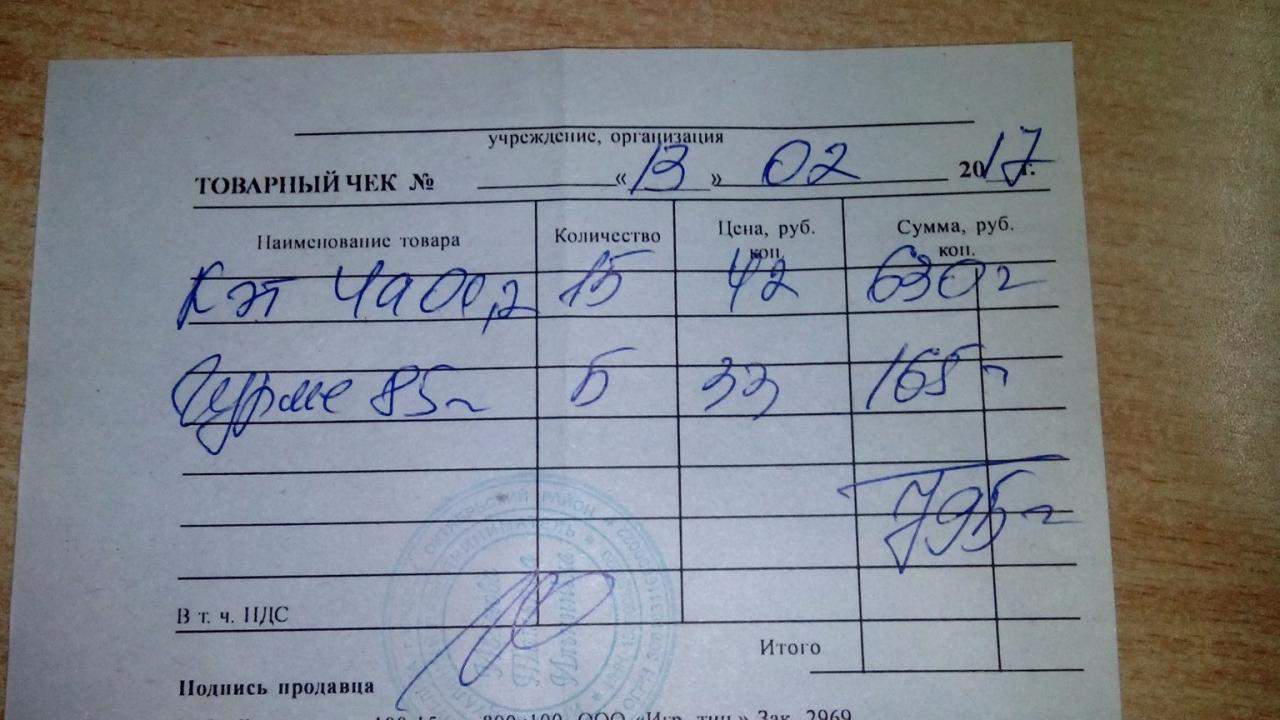 учреждение, организация
ТОВАРНЫЙ ЧЕК № «13» 02 2017 г.
Наименование товара Количество Цена, руб. коп. Сумма, руб. коп.
Кэт 15 42 630
Гурме 85г 5 33 165
795
В т. ч. НДС
Итого
Подпись продавца
ООО «Игр. тип.» Зак. 2969